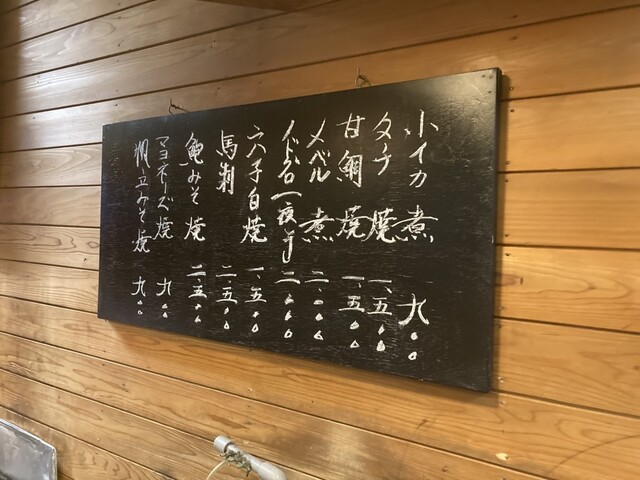 小イカ 煮 九〇〇
タチ 焼 一、五〇〇
甘鯛 焼 一、五〇〇
メバル 煮 二、〇〇〇
一夜干 二、〇〇〇
穴子白焼 一、五〇〇
馬刺 二、五〇〇
鮑みそ焼 二、五〇〇
マヨネーズ焼 九〇〇
帆立みそ焼 九〇〇